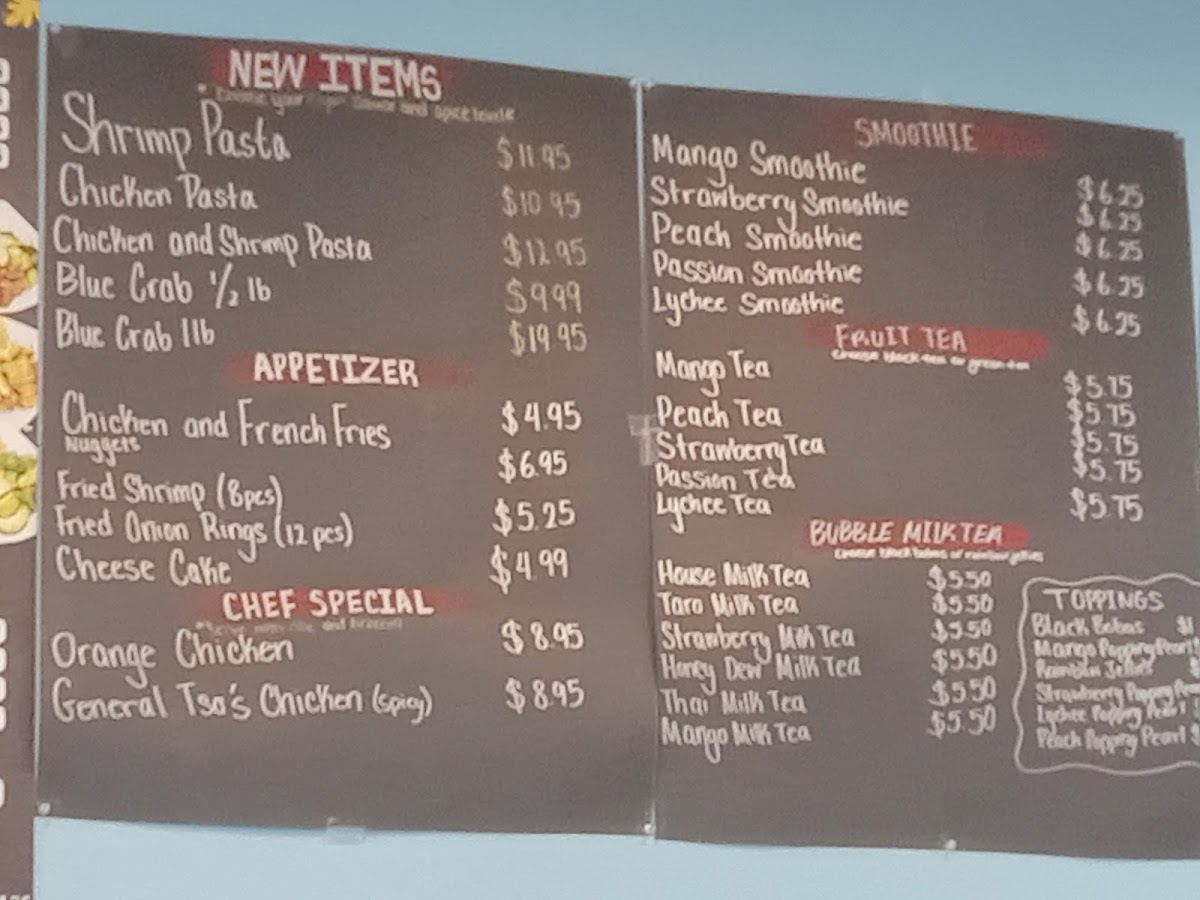 NEW ITEMS
your flavor and spice levels
Shrimp Pasta $11.95
Chicken Pasta $10.95
Chicken and Shrimp Pasta $12.95
Blue Crab 1/2 lb $9.99
Blue Crab 1lb $19.95
APPETIZER
Chicken and French Fries $4.95
Nuggets
Fried Shrimp (8pcs) $6.95
Fried Onion Rings (12 pcs) $5.25
Cheese Cake $4.99
CHEF SPECIAL
and broccoli
Orange Chicken $8.95
General Tso's Chicken (spicy) $8.95
SMOOTHIE
Mango Smoothie $6.25
Strawberry Smoothie $6.25
Peach Smoothie $6.25
Passion Smoothie $6.25
Lychee Smoothie $6.25
FRUIT TEA
Choose black tea or green tea
Mango Tea $5.75
Peach Tea $5.75
Strawberry Tea $5.75
Passion Tea $5.75
Lychee Tea $5.75
BUBBLE MILK TEA
Choose black bobas or rainbow jellies
House Milk Tea $5.50
Taro Milk Tea $5.50
Strawberry Milk Tea $5.50
Honey Dew Milk Tea $5.50
Thai Milk Tea $5.50
Mango Milk Tea $5.50
TOPPINGS
Black Bobas $1
Mango Popping Pearl
Rainbow Jellies
Strawberry Popping
Lychee Popping Pearl
Peach Popping Pearl $